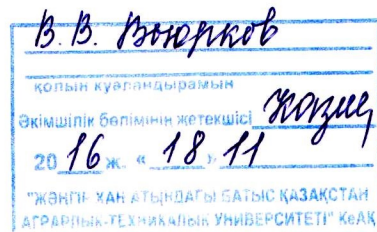 В. В. Вьюрков
қолын куәландырамын
Әкімшілік бөлімінің жетекшісі
20 16 ж. « 18 » 11
"ЖӘҢГІР ХАН АТЫНДАҒЫ БАТЫС ҚАЗАҚСТАН
АГРАРЛЫҚ-ТЕХНИКАЛЫҚ УНИВЕРСИТЕТІ" КеАҚ